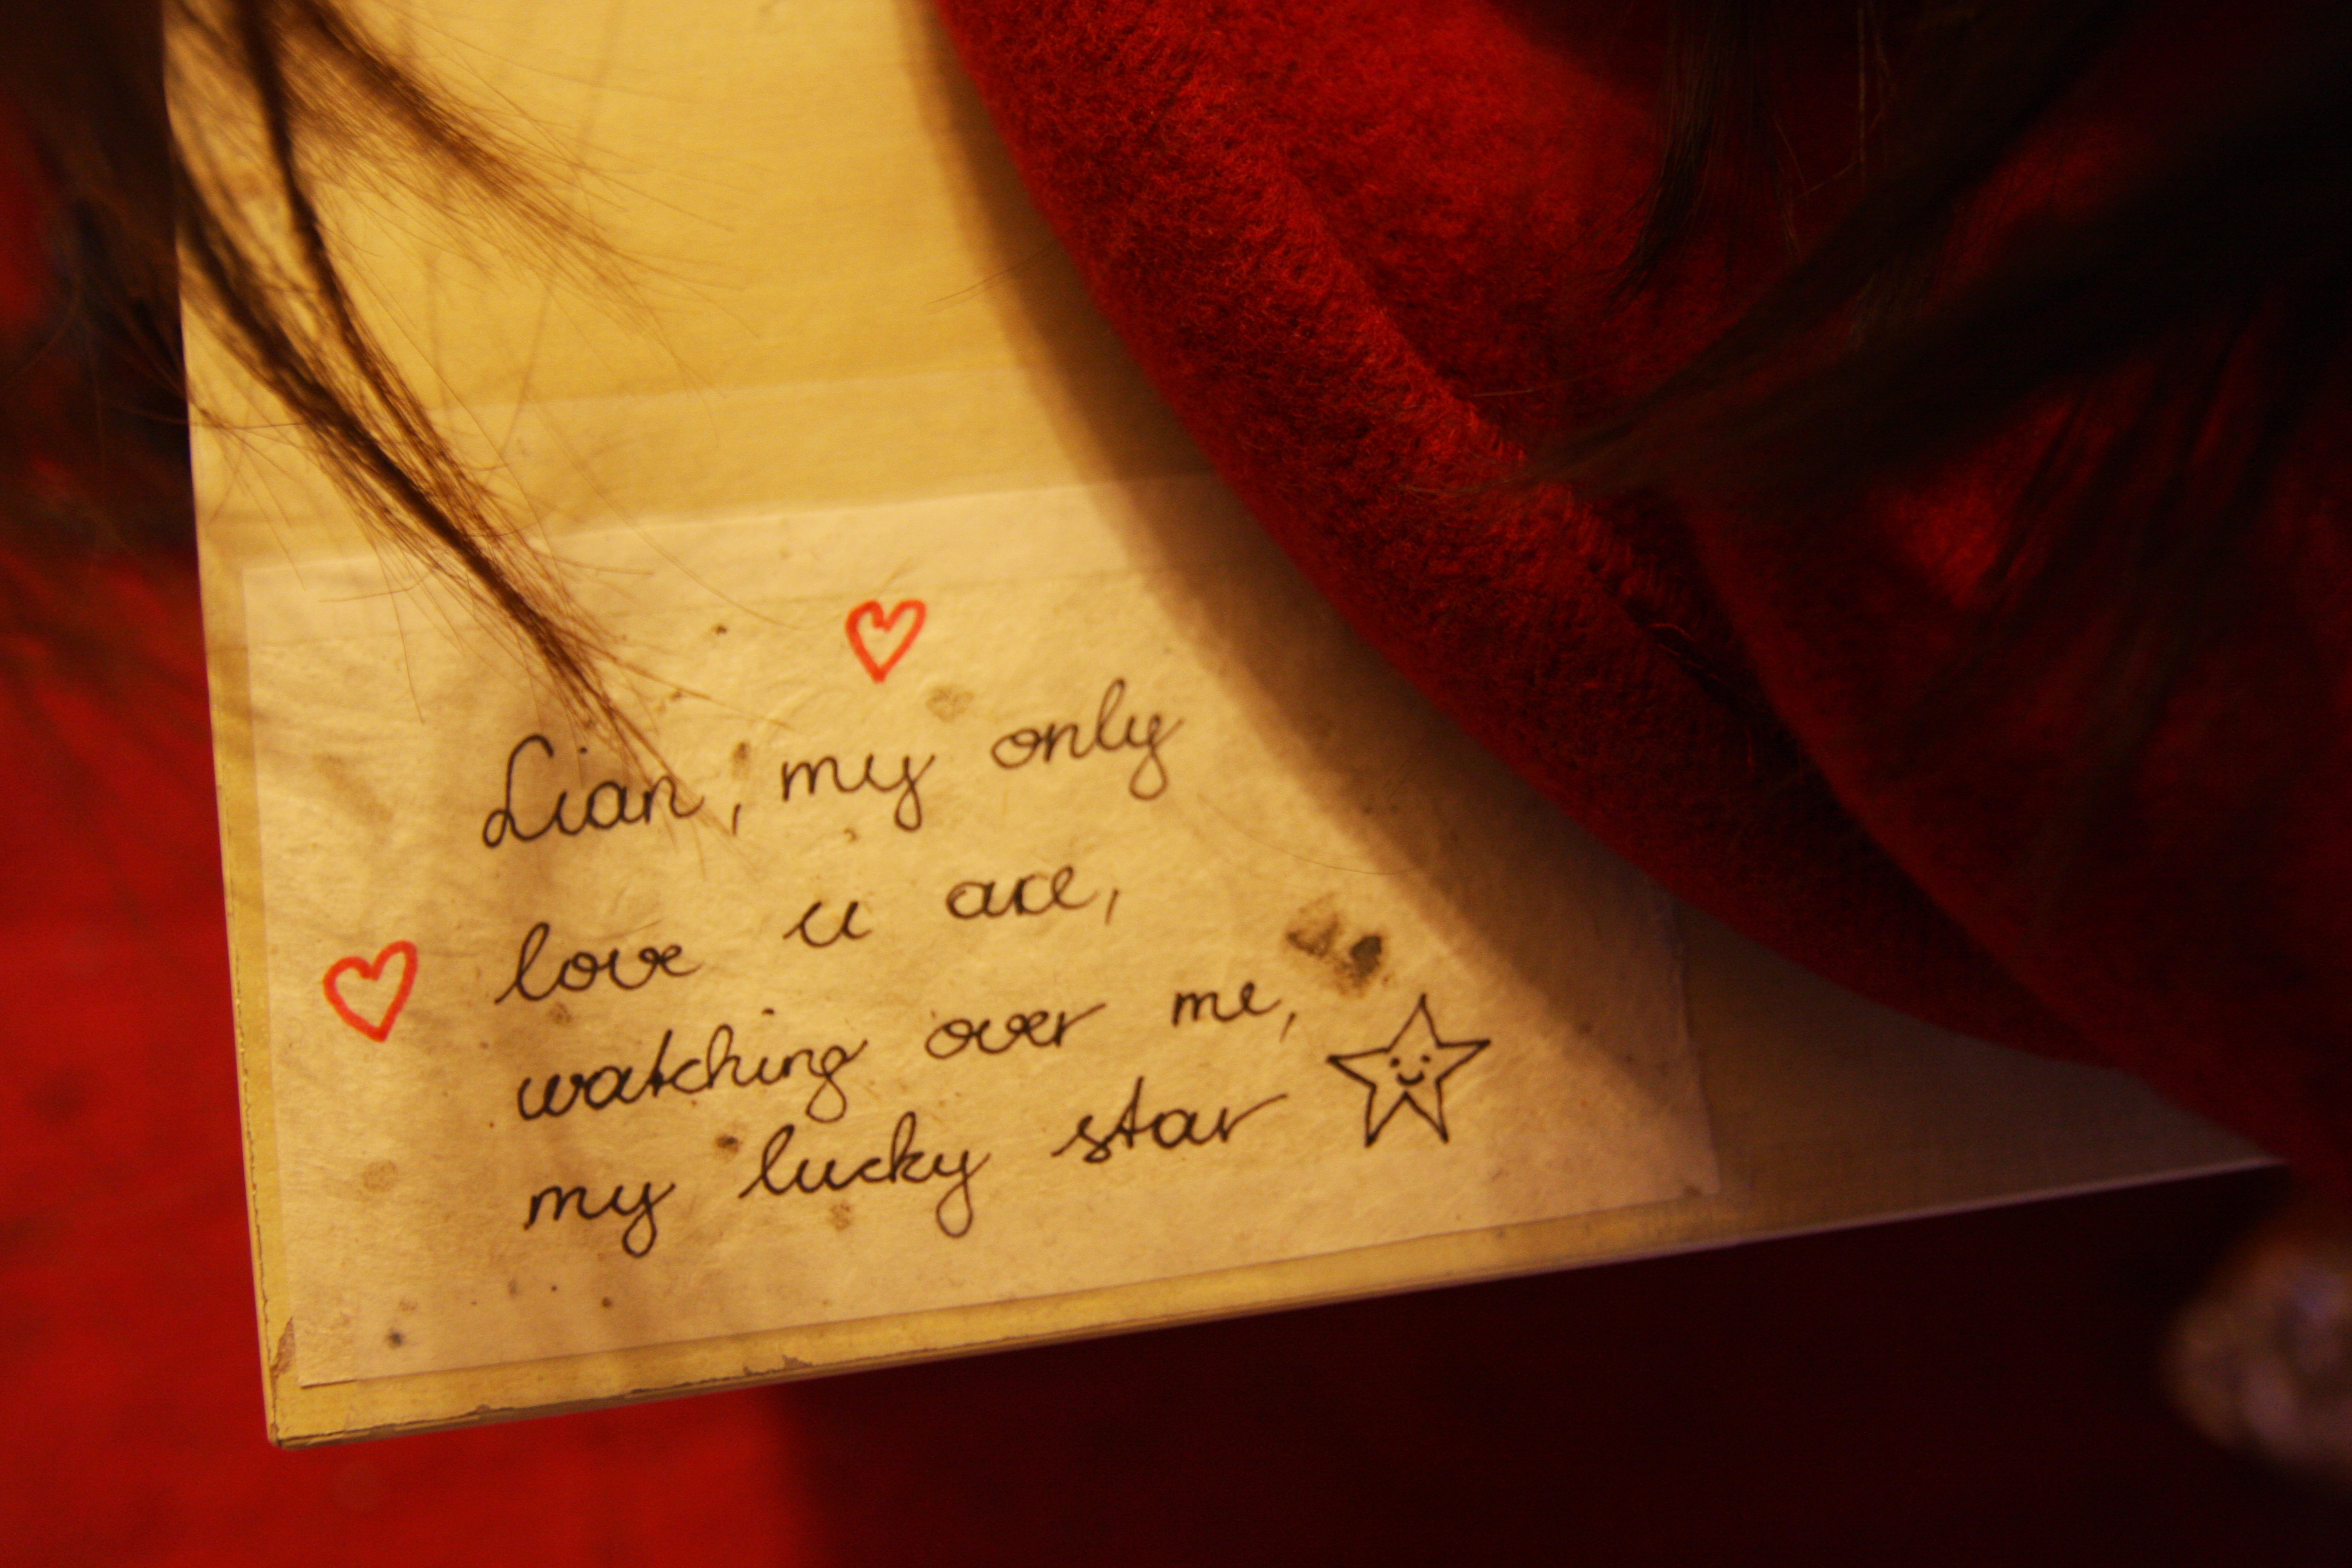 Lian, my only
love u are,
watching over me,
my lucky star